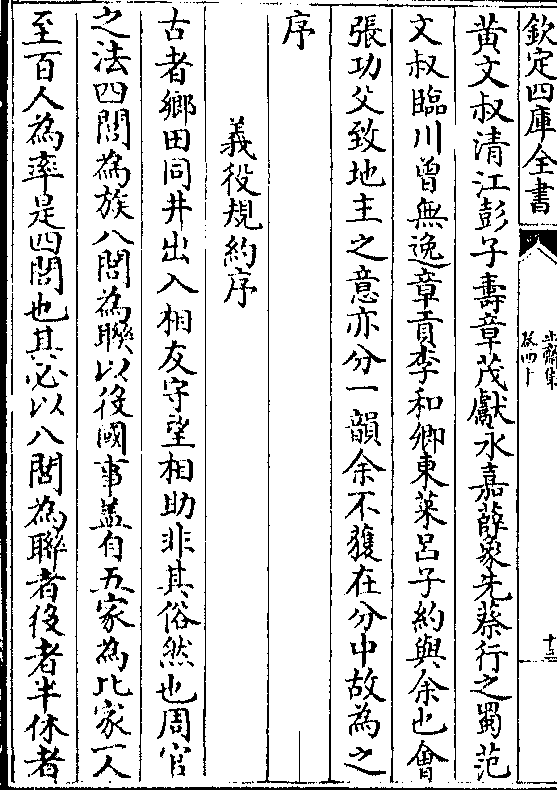 欽定四庫全書
止齋集
卷四十
十三
黃文叔清江彭子壽章茂獻永嘉薛象先蔡行之蜀范
文叔臨川曾無逸章貢李和卿東萊呂子約與余也會
張功父致地主之意亦分一韻余不獲在分中故為之
序
義役規約序
古者鄉田同井出入相友守望相助非其俗然也周官
之法四閭為族八閭為聯以役國事葢自五家為比家一人
至百人為率是四閭也其必以八閭為聯者役者半休者